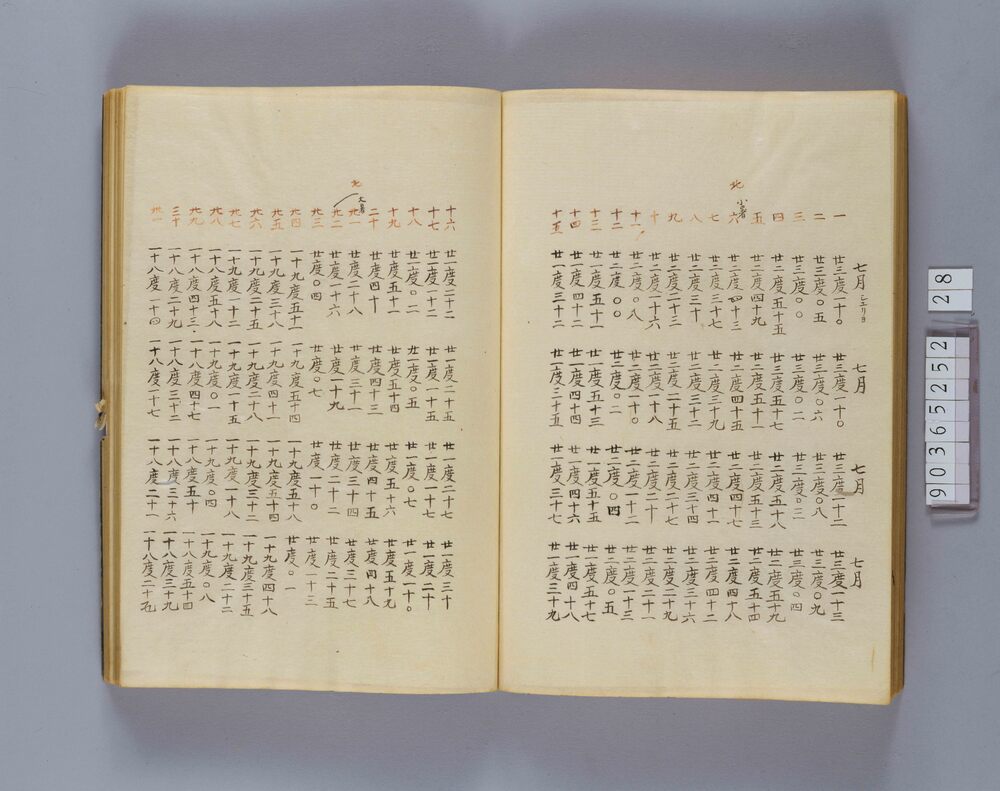 七月 七月 七月 七月
一 廿三度一十〇 廿三度一十〇 廿三度一十二 廿三度一十三
二 廿三度〇五 廿三度〇六 廿三度〇八 廿三度〇九
三 廿三度〇〇 廿三度〇一 廿三度〇二 廿三度〇四
四 廿二度五十五 廿三度五十七 廿二度五十八 廿二度五十九
五 廿二度四十九 廿二度五十一 廿二度五十三 廿二度五十四
北 小暑
六 廿二度四十三 廿二度四十五 廿二度四十七 廿二度四十八
七 廿二度三十七 廿二度三十九 廿二度四十一 廿二度四十二
八 廿二度三十 廿二度三十二 廿二度三十四 廿二度三十六
九 廿二度二十三 廿二度二十五 廿二度二十七 廿二度二十九
十 廿二度一十六 廿二度一十八 廿二度二十 廿二度二十一
十一 廿二度〇八 廿二度一十〇 廿二度一十二 廿二度一十三
十二 廿二度〇〇 廿二度〇二 廿二度〇四 廿二度〇五
十三 廿一度五十一 廿一度五十三 廿一度五十五 廿一度五十七
十四 廿一度四十二 廿一度四十四 廿一度四十六 廿一度四十八
十五 廿一度三十二 廿一度三十五 廿一度三十七 廿一度三十九
十六 廿一度二十二 廿一度二十五 廿一度二十七 廿一度三十
十七 廿一度一十二 廿一度一十五 廿一度一十七 廿一度二十
十八 廿一度〇二 廿一度〇五 廿一度〇七 廿一度一十〇
十九 廿度五十一 廿度五十四 廿度五十六 廿度五十九
二十 廿度四十 廿度四十三 廿度四十五 廿度四十八
北 大暑
廿一 廿度二十八 廿度三十一 廿度三十四 廿度三十七
廿二 廿度一十六 廿度一十九 廿度二十二 廿度二十五
廿三 廿度〇四 廿度〇七 廿度一十〇 廿度一十三
廿四 一十九度五十一 一十九度五十四 一十九度五十八 廿度〇一
廿五 一十九度三十八 一十九度四十一 一十九度五十四 一十九度四十八
廿六 一十九度二十五 一十九度二十八 一十九度三十二 一十九度三十五
廿七 一十九度一十二 一十九度一十五 一十九度一十八 一十九度二十二
廿八 一十八度五十八 一十九度〇一 一十九度〇四 一十九度〇八
廿九 一十八度四十三 一十八度四十七 一十八度五十 一十八度五十四
三十 一十八度二十九 一十八度三十二 一十八度三十六 一十八度三十九
卅一 一十八度一十四 一十八度一十七 一十八度二十一 一十八度二十五
28
90365252